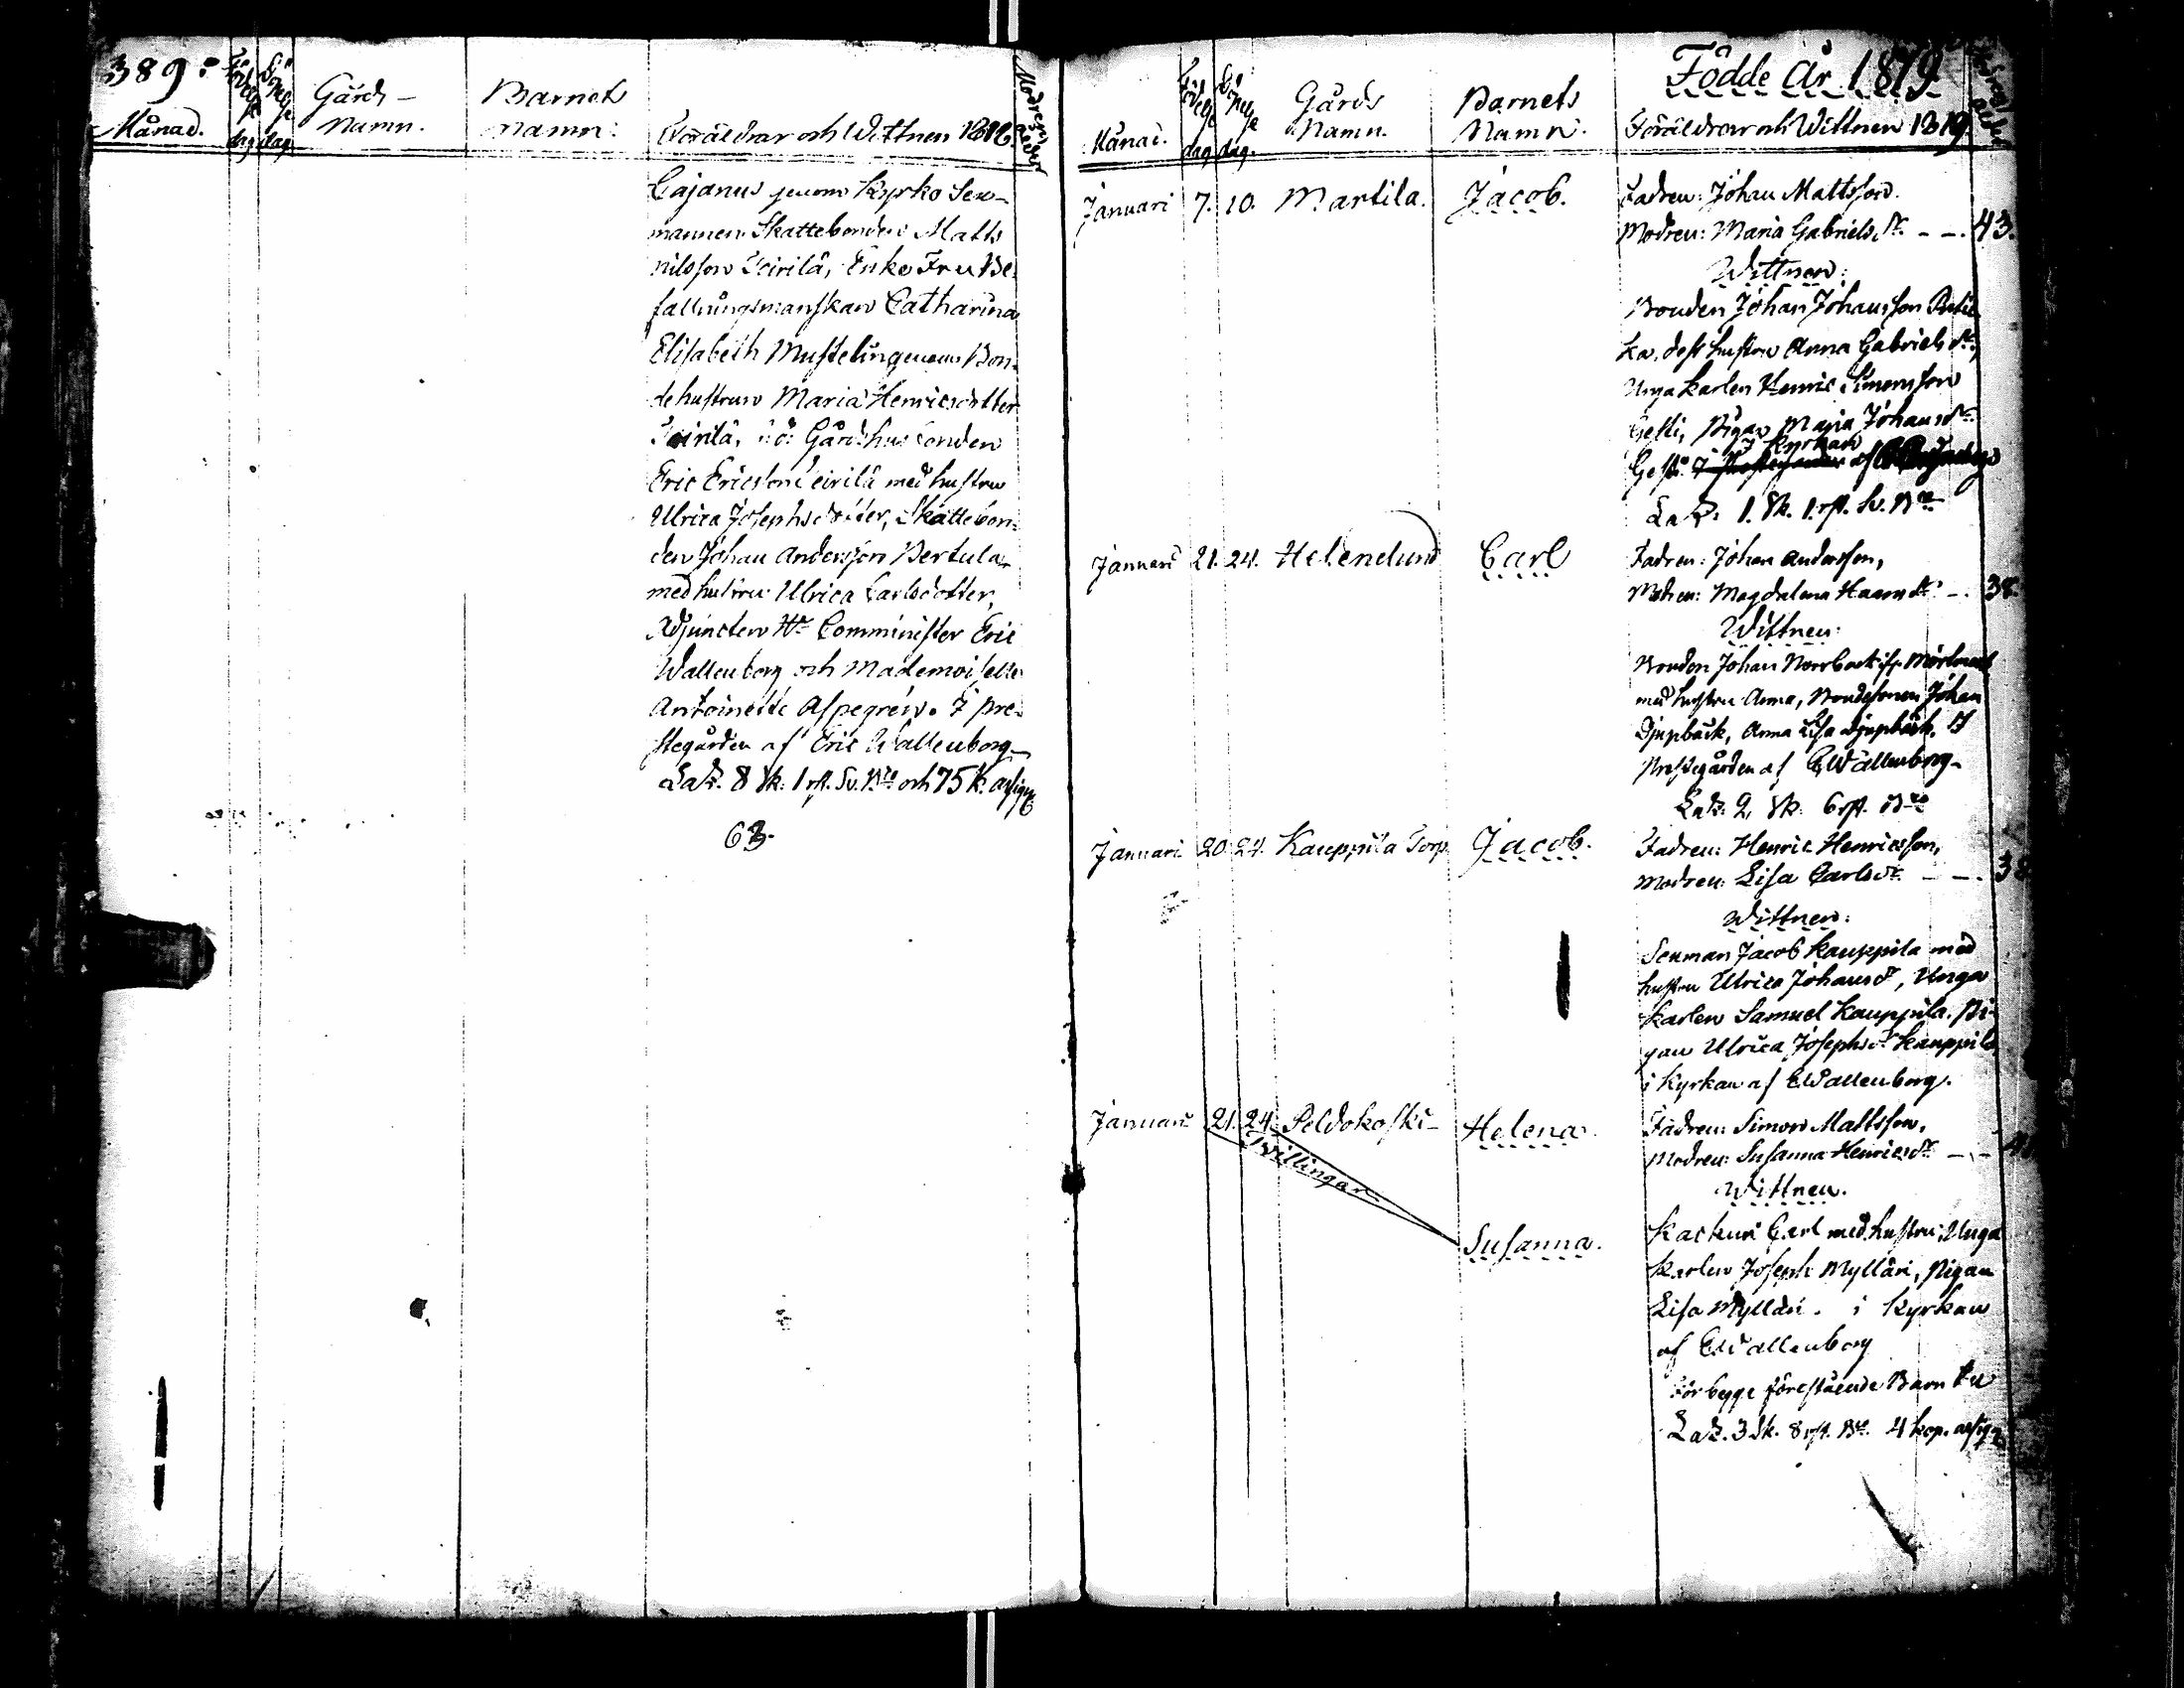 389:
Månad.
Födelse dag
Döpelse dag
Gårds-
Namn.
Barnets
Namn:
Föräldrar och Wittnen 1818.
Modrens ålder
Cajanus genom Kyrko Sex-
mannen Skattebonden Matts
Nilsson Seirilä, Enke Fru Be-
fallningsmanskan Catharina
Elisabeth Mustelin genom Bon-
dehustrun Maria Henricsdotter
Seirilä, Gårdshusbonden
Eric Ericsson Seirilä med hustru
Ulrica Josephsdotter, Skattebon-
den Johan Andersson Bertula
med hustru Ulrica Carlsdotter,
Adjuncten Hr Comminister Eric
Wallenborg och Mademoiselle
Antoinette Aspegrén. I Pre-
stegården af Eric Wallenborg
Laz. 8 sk. 1 rst. Sv. Bco och 75 k. assign
63.
Födde År 1819
Månad.
Födelse dag
Döpelse dag.
Gårds
Namn.
Barnets
Namn.
Föräldrar och Wittnen 1819.
Januari 7. 10. Martila. Jacob. Fadren: Johan Mattsson.
Modren: Maria Gabrielsdr. - - 43.
Wittnen:
Bonden Johan Johansson
ka, dess hustru Anna Gabrielsdr,
Unga karlen Henric Simonsson
Gesti, Pigan Maria Johansdr
I Kyrkan
Gesti. af
Laz: 1. sk. 1 rst. Sv. Bco
Januari 21. 24. Helenelund Carl Fadren: Johan Andersson,
Modren: Magdalena Hansdr - . 38.
Wittnen:
Bonden Johan Norrback
med hustru Anna, Bondesonen Johan
Djupbäck, Anna Lisa Djupbäck. I
Prestegården af EWallenborg
Laz: 2, sk. 6 rst. Bco
Januari 20. 24. Kauppila Torp Jacob. Fadren: Henric Henricsson,
Modren: Lisa Carlsdr - - .
Wittnen:
Sexman Jacob Kauppila med
hustru Ulrica Johansdr, Unga
karlen Samuel Kauppila, Pi-
gan Ulrica Josephsdr Kauppila
i Kyrkan af EWallenborg.
Januari 21. 24. Peldokoski Helena. Fadren: Simon Mattsson,
Modren: Susanna Henricsdr - -
Twillingar
Wittnen.
Susanna. Karhui Carl med hustru, Unga
karlen Joseph Mylläri, Pigan
Lisa Mylläri. i Kyrkan
af EWallenborg
För begge förestående Barn
Laz. 3 sk. 8 rst. Bco. 4 kop. assign